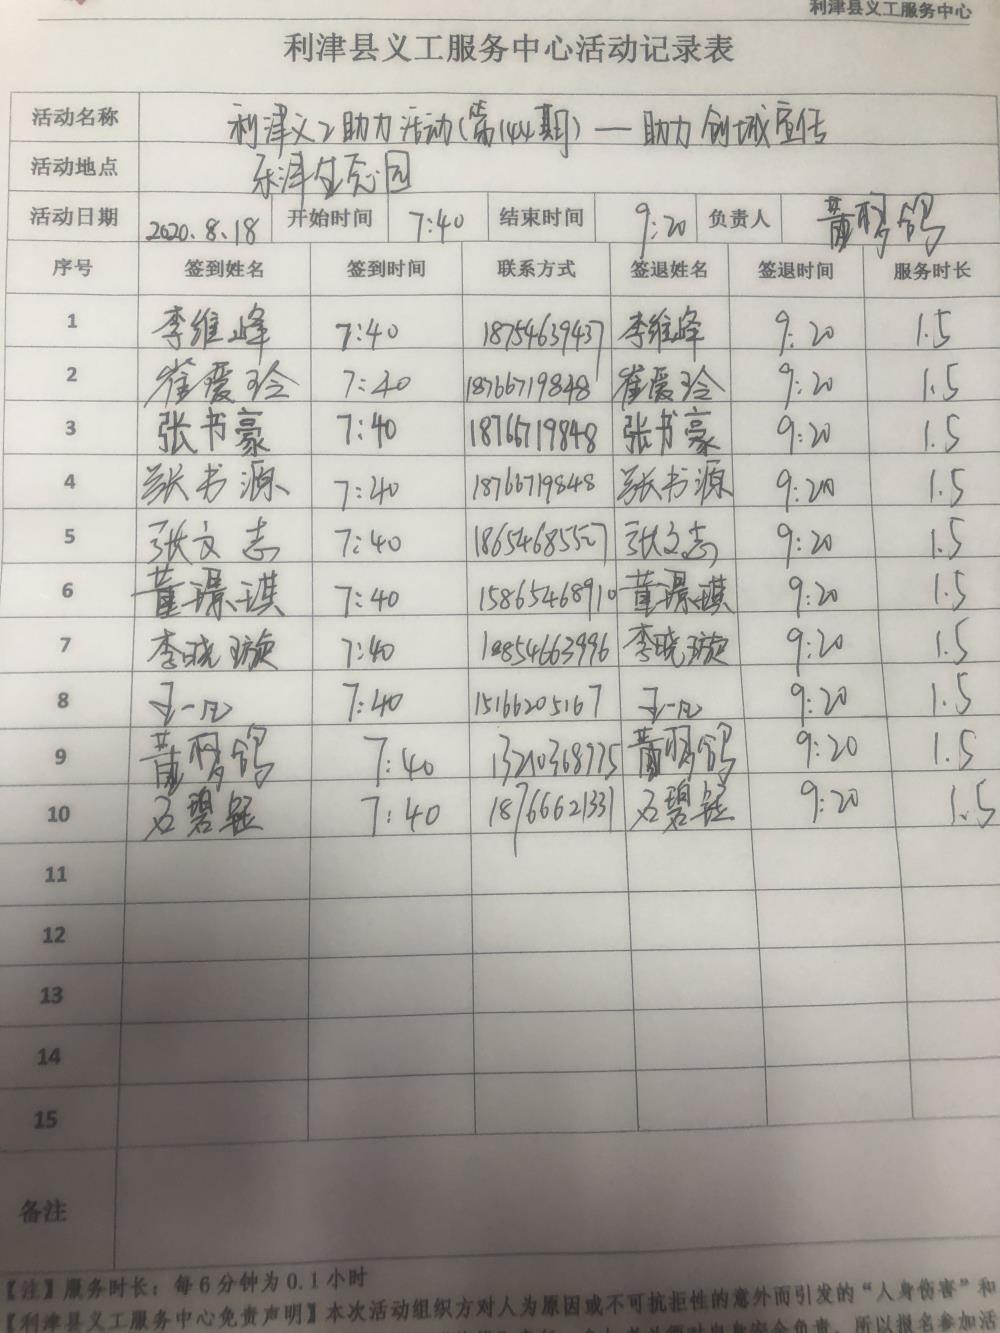 利津县义工服务中心
利津县义工服务中心活动记录表
活动名称 利津义工助力活动(第144期)—助力创城宣传
活动地点 东津生态园
活动日期 2020.8.18 开始时间 7:40 结束时间 9:20 负责人 董
序号 签到姓名 签到时间 联系方式 签退姓名 签退时间 服务时长
1 李维峰 7:40 18754639437 李维峰 9:20 1.5
2 崔爱玲 7:40 18766719848 崔爱玲 9:20 1.5
3 张书豪 7:40 18766719848 张书豪 9:20 1.5
4 张书源 7:40 18766719848 张书源 9:20 1.5
5 张文志 7:40 18654685527 张文志 9:20 1.5
6 董璟琪 7:40 15865468910 董璟琪 9:20 1.5
7 李晓璇 7:40 18854663996 李晓璇 9:20 1.5
8 王一凡 7:40 15166205167 王一凡 9:20 1.5
9 董 7:40 13210368775 董 9:20 1.5
10 石碧 7:40 18766621331 石碧 9:20 1.5
11
12
13
14
15
备注
【注】服务时长：每6分钟为0.1小时
【利津县义工服务中心免责声明】本次活动组织方对人为原因或不可抗拒性的意外而引发的“人身伤害”和
所以报名参加活